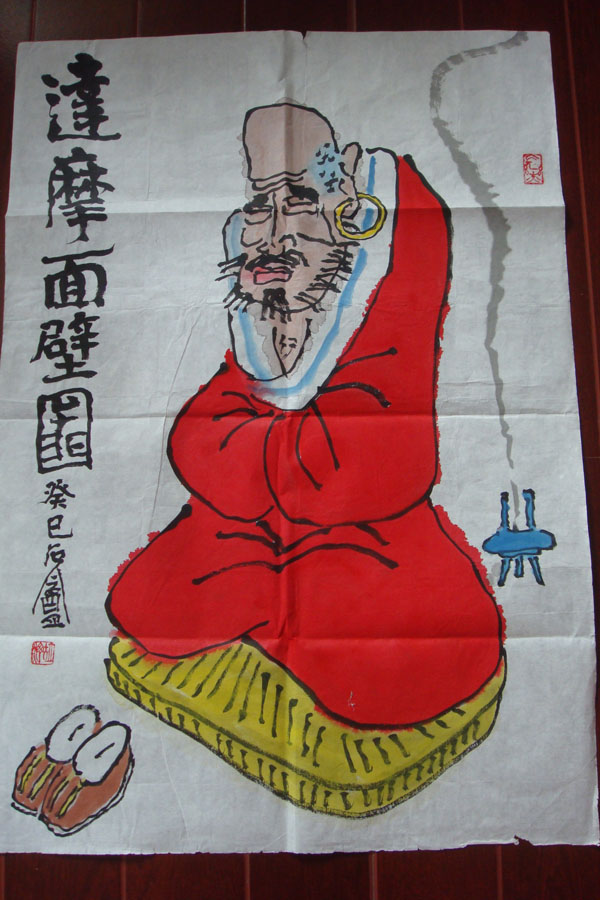 達摩面壁圖
癸巳石